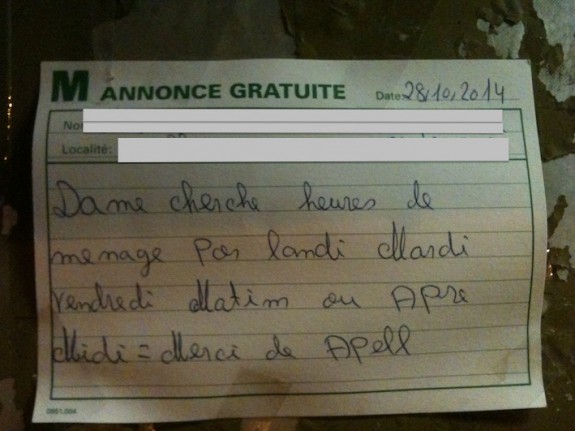 M ANNONCE GRATUITE Date: 28,10,2014
Localité:
Dame cherche heures de
menage Par landi Mardi
Vendredi Matim ou APre
Midi = Merci de APell
0951.094